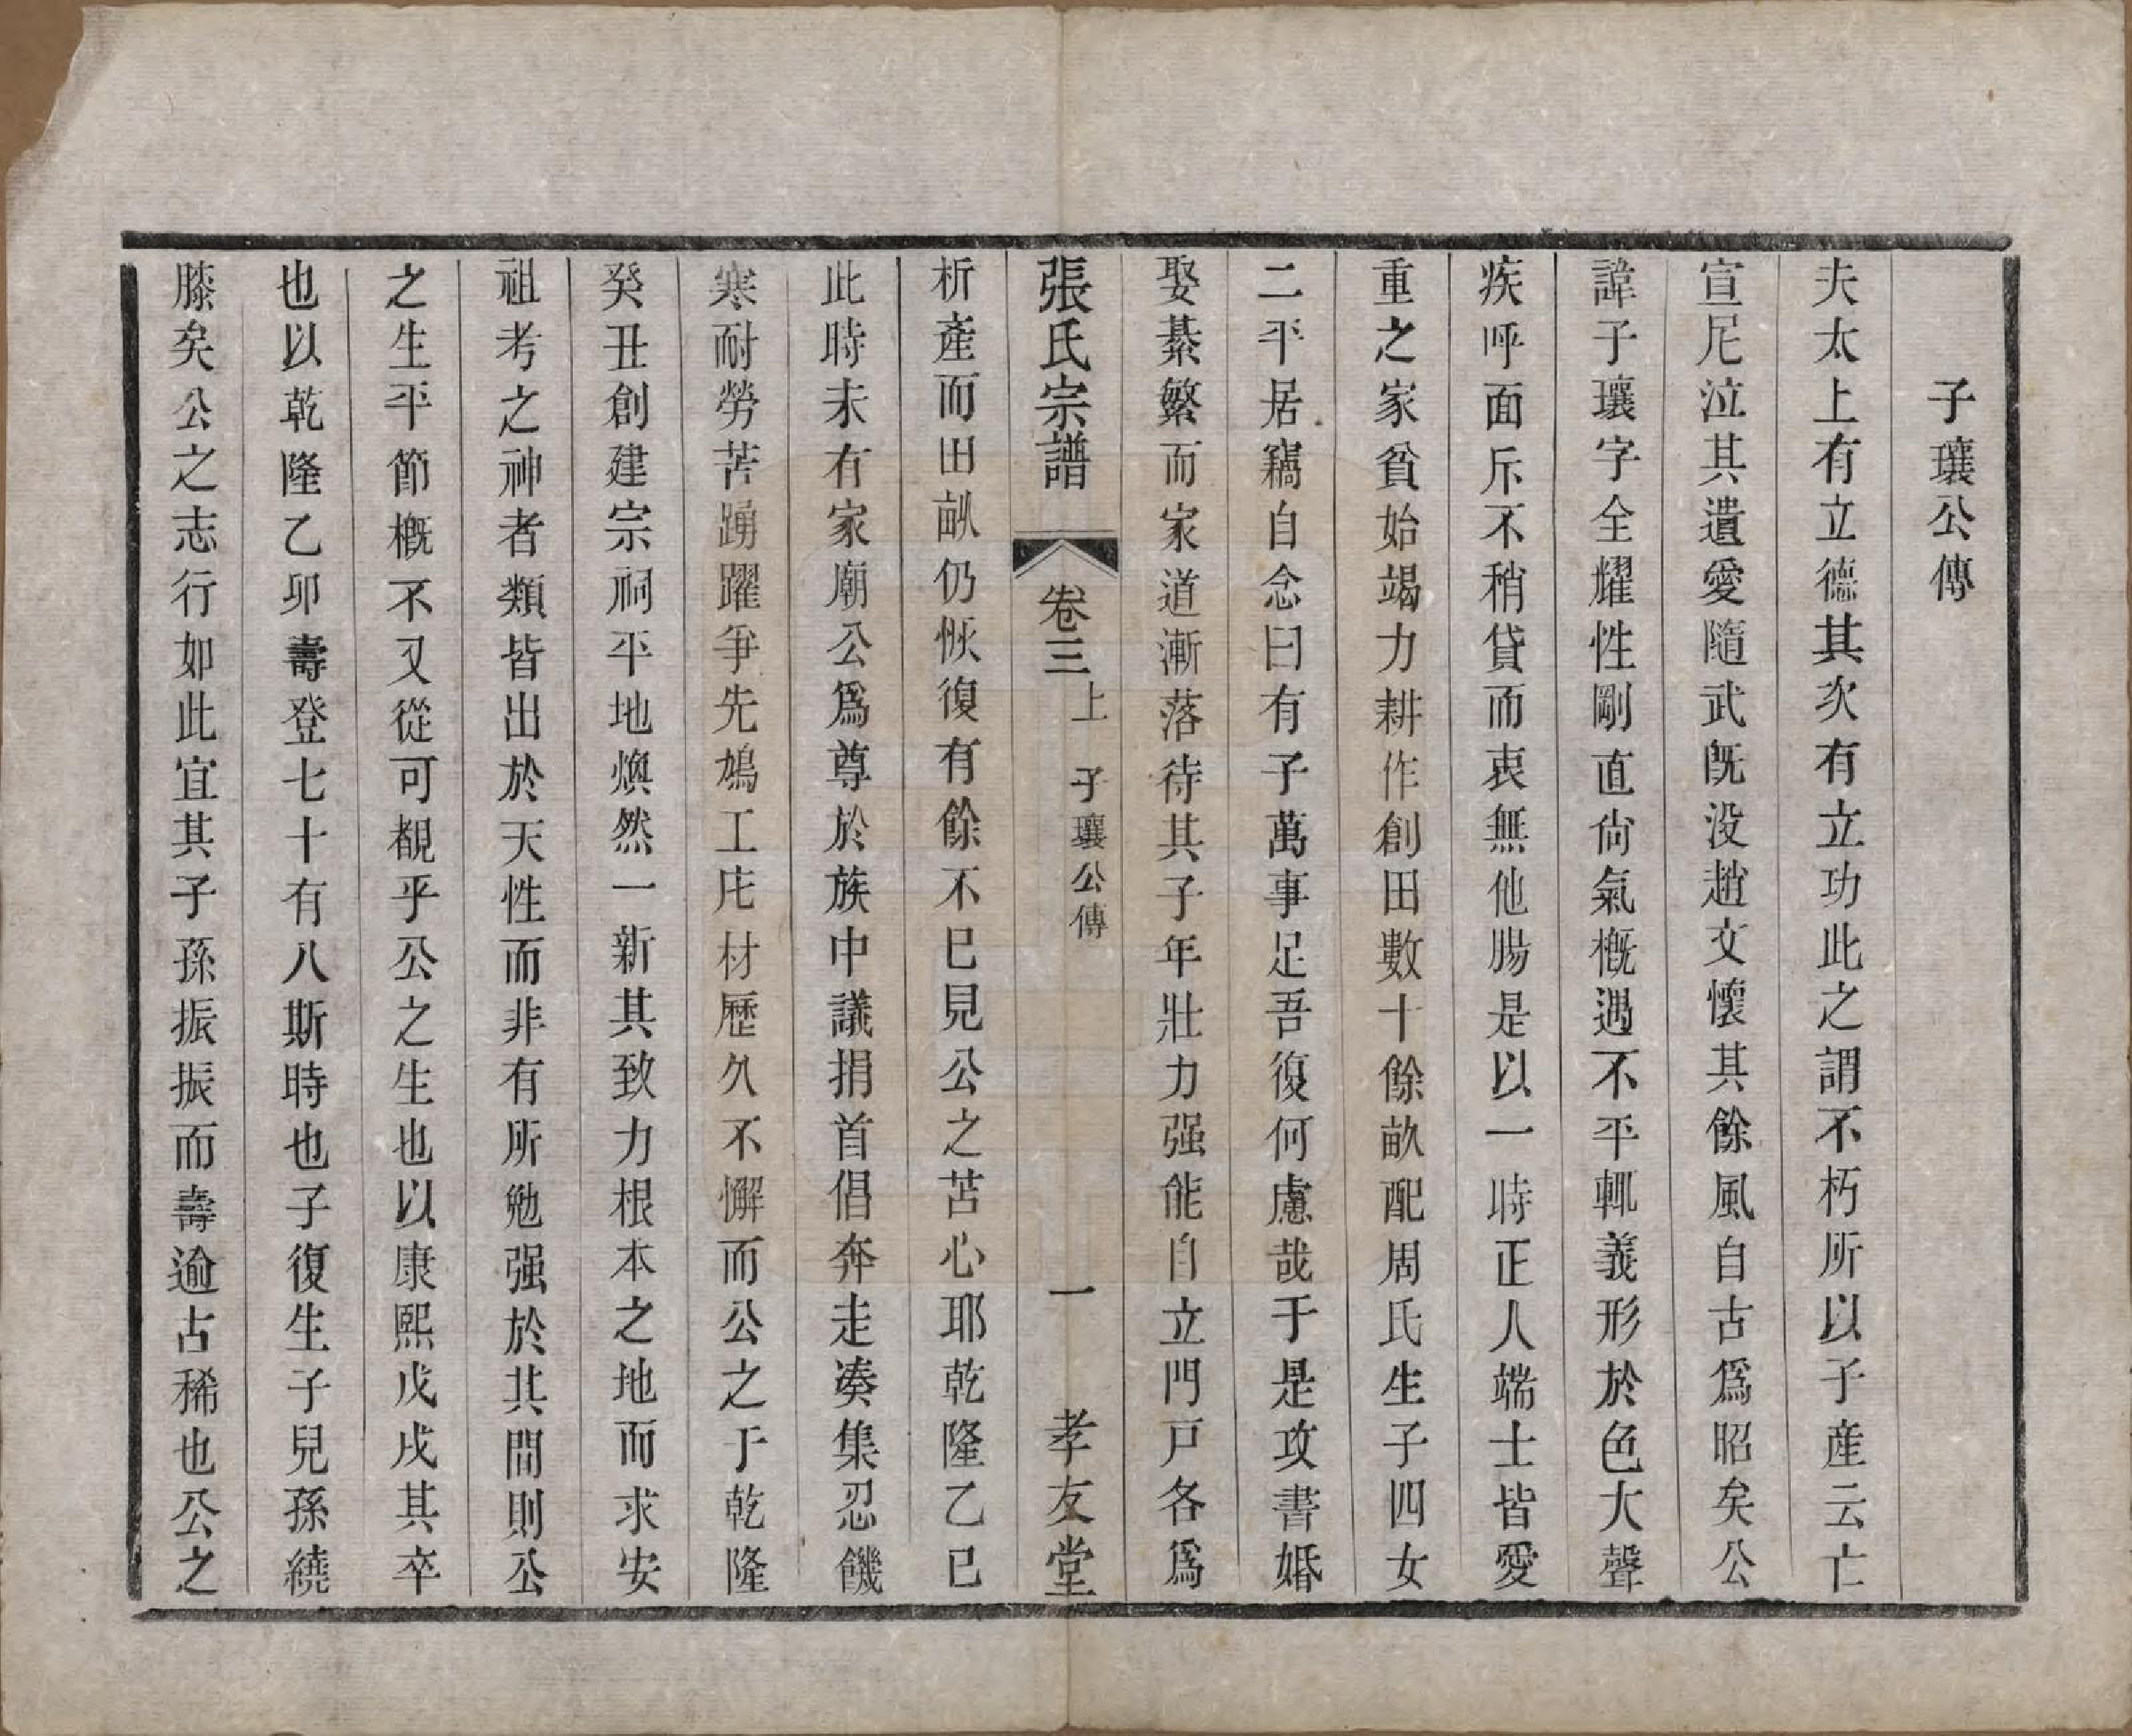 子瓖公傳
夫太上有立德其次有立功此之謂不朽所以子産云亡
宣尼泣其遺愛隨武既没趙文懷其餘風自古爲昭矣公
諱子瓖字全耀性剛直尙氣概遇不平輒義形於色大聲
疾呼面斥不稍貸而衷無他腸是以一時正人端士皆愛
重之家貧始竭力耕作創田數十餘畝配周氏生子四女
二平居竊自念曰有子萬事足吾復何慮哉于是攻書婚
娶綦繁而家道漸落待其子年壯力强能自立門戸各爲
張氏宗譜 卷三上 子瓖公傳 一 孝友堂
析產而田畝仍恢復有餘不已見公之苦心耶乾隆乙已
此時未有家廟公爲尊於族中議捐首倡奔走凑集忍饑
寒耐勞苦踴躍爭先鳩工庀材歷久不懈而公之于乾隆
癸丑創建宗祠平地煥然一新其致力根本之地而求安
祖考之神者類皆出於天性而非有所勉强於其間則公
之生平節概不又從可覩乎公之生也以康熙戊戌其卒
也以乾隆乙卯壽登七十有八斯時也子復生子兒孫繞
膝矣公之志行如此宜其子孫振振而壽逾古稀也公之